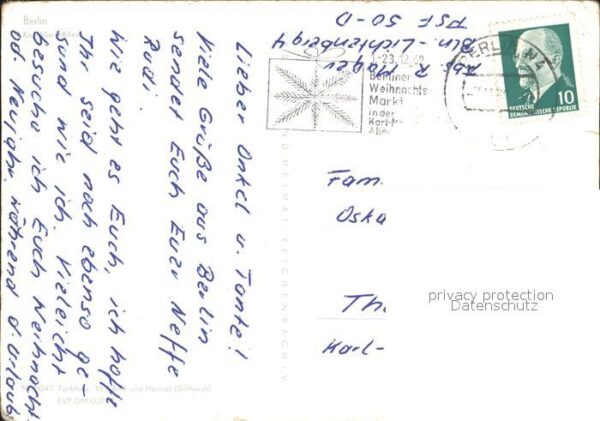 Berlin
Lieber Onkel u. Tante!
Viele Grüße aus Berlin
sendet Euch Euer Neffe
Rudi.
Wie geht es Euch, ich hoffe
Ihr seid noch ebenso ge-
sund wie ich. Vieleicht
besuche ich Euch Weihnacht.
od. Neujahr während d. Urlaub
Abs. R.
Bln.-Lichtenberg 4
PSF 50-D
-23.12.
Berliner
Weihnachts
Markt
in der
Karl-M
Allee
BERLIN N4
DEUTSCHE
DEMOKRATISCHE REPUBLIK
10
Fam.
Oska
Th.
Karl-
privacy protection
Datenschutz
UND HEIMAT REICHENBACH I.V.
EVP DM 0,20